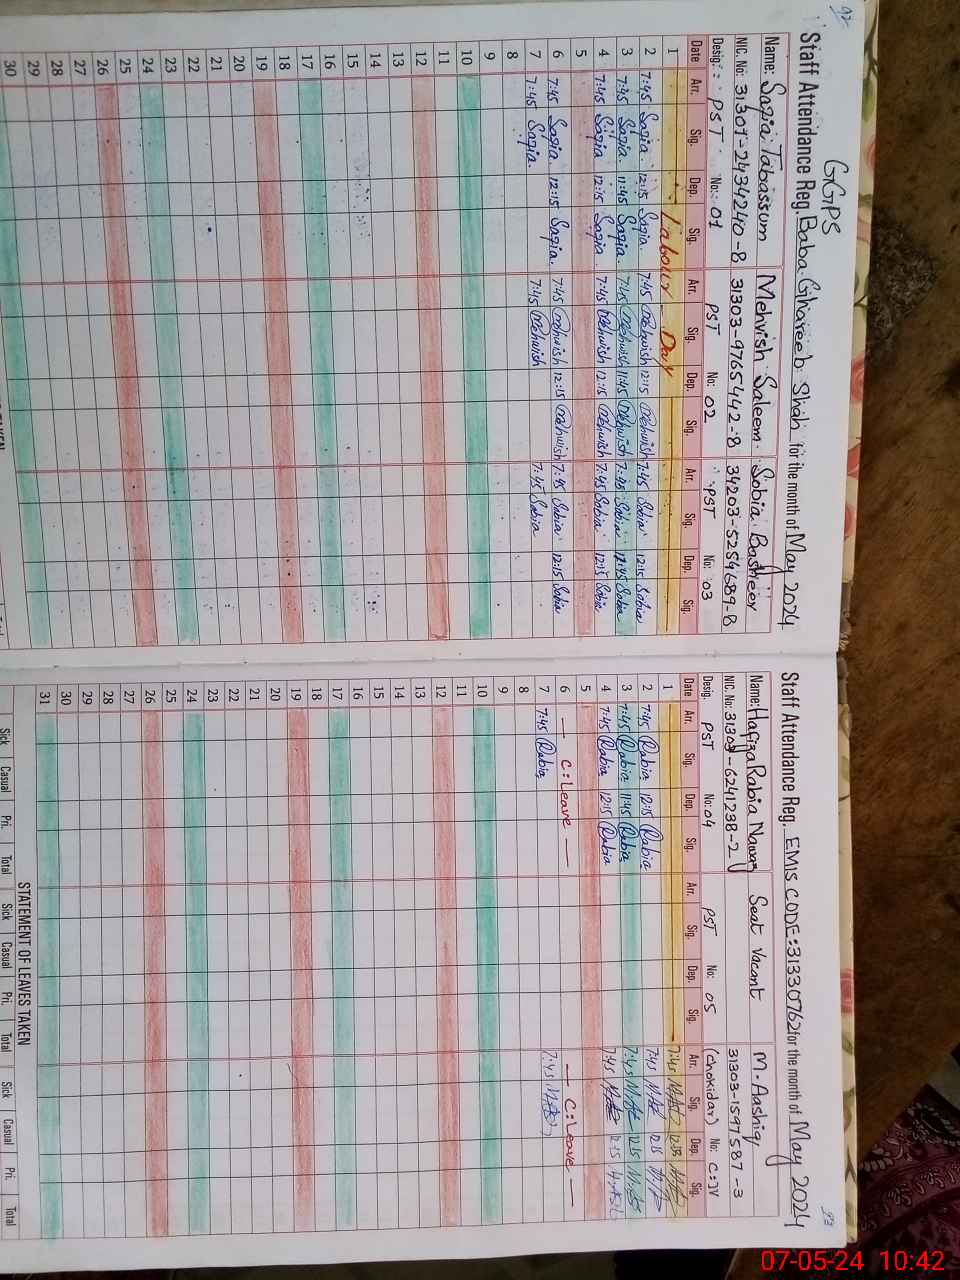 92
GGPS
Staff Attendance Reg. Baba Ghareeb Shah for the month of May 2024
Name: Sazia Tabassum Mehvish Saleem Sobia Basheer
NIC. No: 31301-2434240-8 31303-9765442-8 34203-5254689-8
Desig: PST No: 01 PST No: 02 PST No: 03
Date Arr. Sig. Dep. Sig. Arr. Sig. Dep. Sig. Arr. Sig. Dep. Sig.
1 Labour Day
2 7:45 Sazia 12:15 Sazia 7:45 Mehwish 12:15 Mehwish 7:45 Sobia 12:15 Sobia
3 7:45 Sazia 11:45 Sazia 7:45 Mehwish 11:45 Mehwish 7:45 Sobia 11:45 Sobia
4 7:45 Sazia 12:15 Sazia 7:45 Mehwish 12:15 Mehwish 7:45 Sobia 12:15 Sobia
5
6 7:45 Sazia 12:15 Sazia 7:45 Mehwish 12:15 Mehwish 7:45 Sobia 12:15 Sobia
7 7:45 Sazia 7:45 Mehwish 7:45 Sobia
8
9
10
11
12
13
14
15
16
17
18
19
20
21
22
23
24
25
26
27
28
29
30
Staff Attendance Reg. EMIS CODE: 31330762 for the month of May 2024
Name: Hafiza Rabia Nawaz Seat Vacant M. Aashiq
NIC. No: 31303-6241238-2 31303-1597587-3
Desig. PST No: 04 PST No: 05 (Chokidar) No: C:IV
Date Arr. Sig. Dep. Sig. Arr. Sig. Dep. Sig. Arr. Sig. Dep. Sig.
1 7:45
2 7:45 Rabia 12:15 Rabia 7:45 12:15
3 7:45 Rabia 11:45 Rabia 7:45 12:15
4 7:45 Rabia 12:15 Rabia 7:45 12:15
5
6 C:Leave C:Leave
7 7:45 Rabia 7:45
8
9
10
11
12
13
14
15
16
17
18
19
20
21
22
23
24
25
26
27
28
29
30
31
STATEMENT OF LEAVES TAKEN
Sick Casual Pri. Total Sick Casual Pri. Total Sick Casual Pri. Total
93
07-05-24 10:42